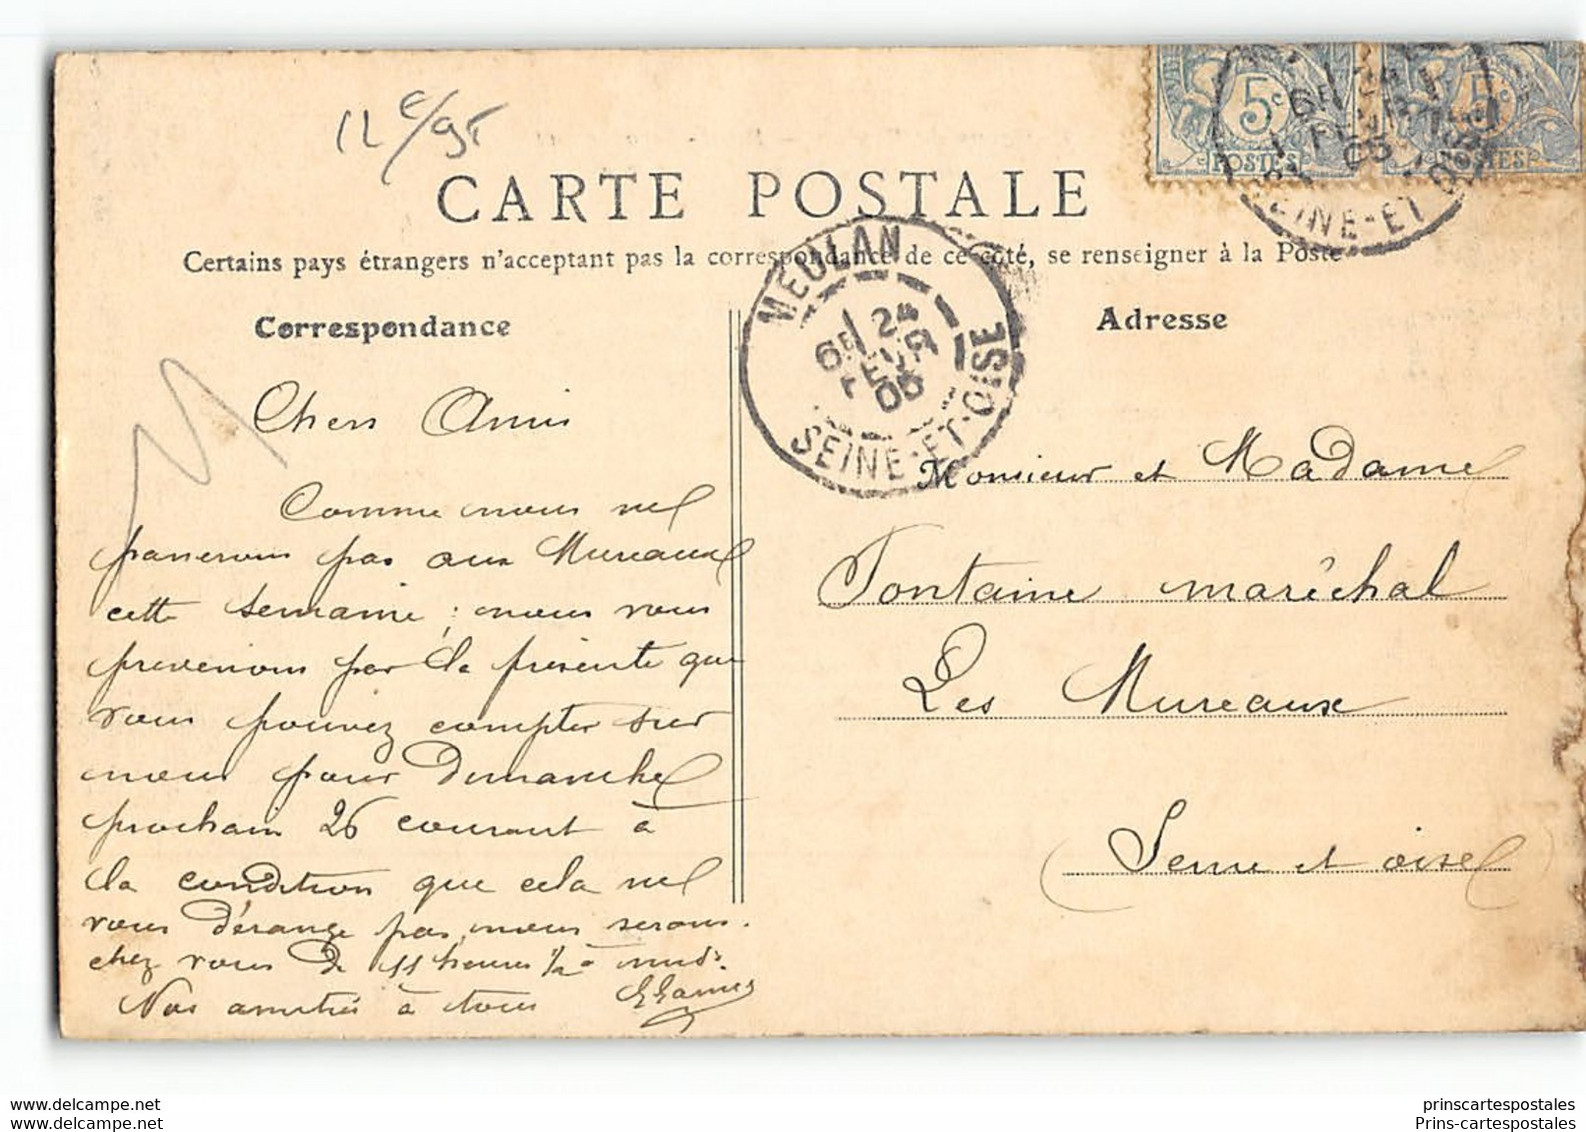 12 €/95
5c
POSTES
5c
POSTES
SEINE-ET-OISE
CARTE POSTALE
Certains pays étrangers n'acceptant pas la correspondance de ce côté, se renseigner à la Poste
MEULAN
6E 24
FEVR
05
SEINE-ET-OISE
Correspondance
Adresse
Chers Amis
Comme nous ne
passerons pas aux Mureaux
cette semaine ; nous vous
prevenons par la présente que
vous pouvez compter sur
nous pour dimanche
prochain 26 courant à
la condition que cela ne
vous dérange pas, nous serons
chez vous de 11 heures 1/2 à midi.
Nos amitiés à tous
Monsieur et Madame
Fontaine maréchal
Les Mureaux
(Seine et oise)
prinscartespostales
Prins-cartespostales
www.delcampe.net
www.delcampe.net